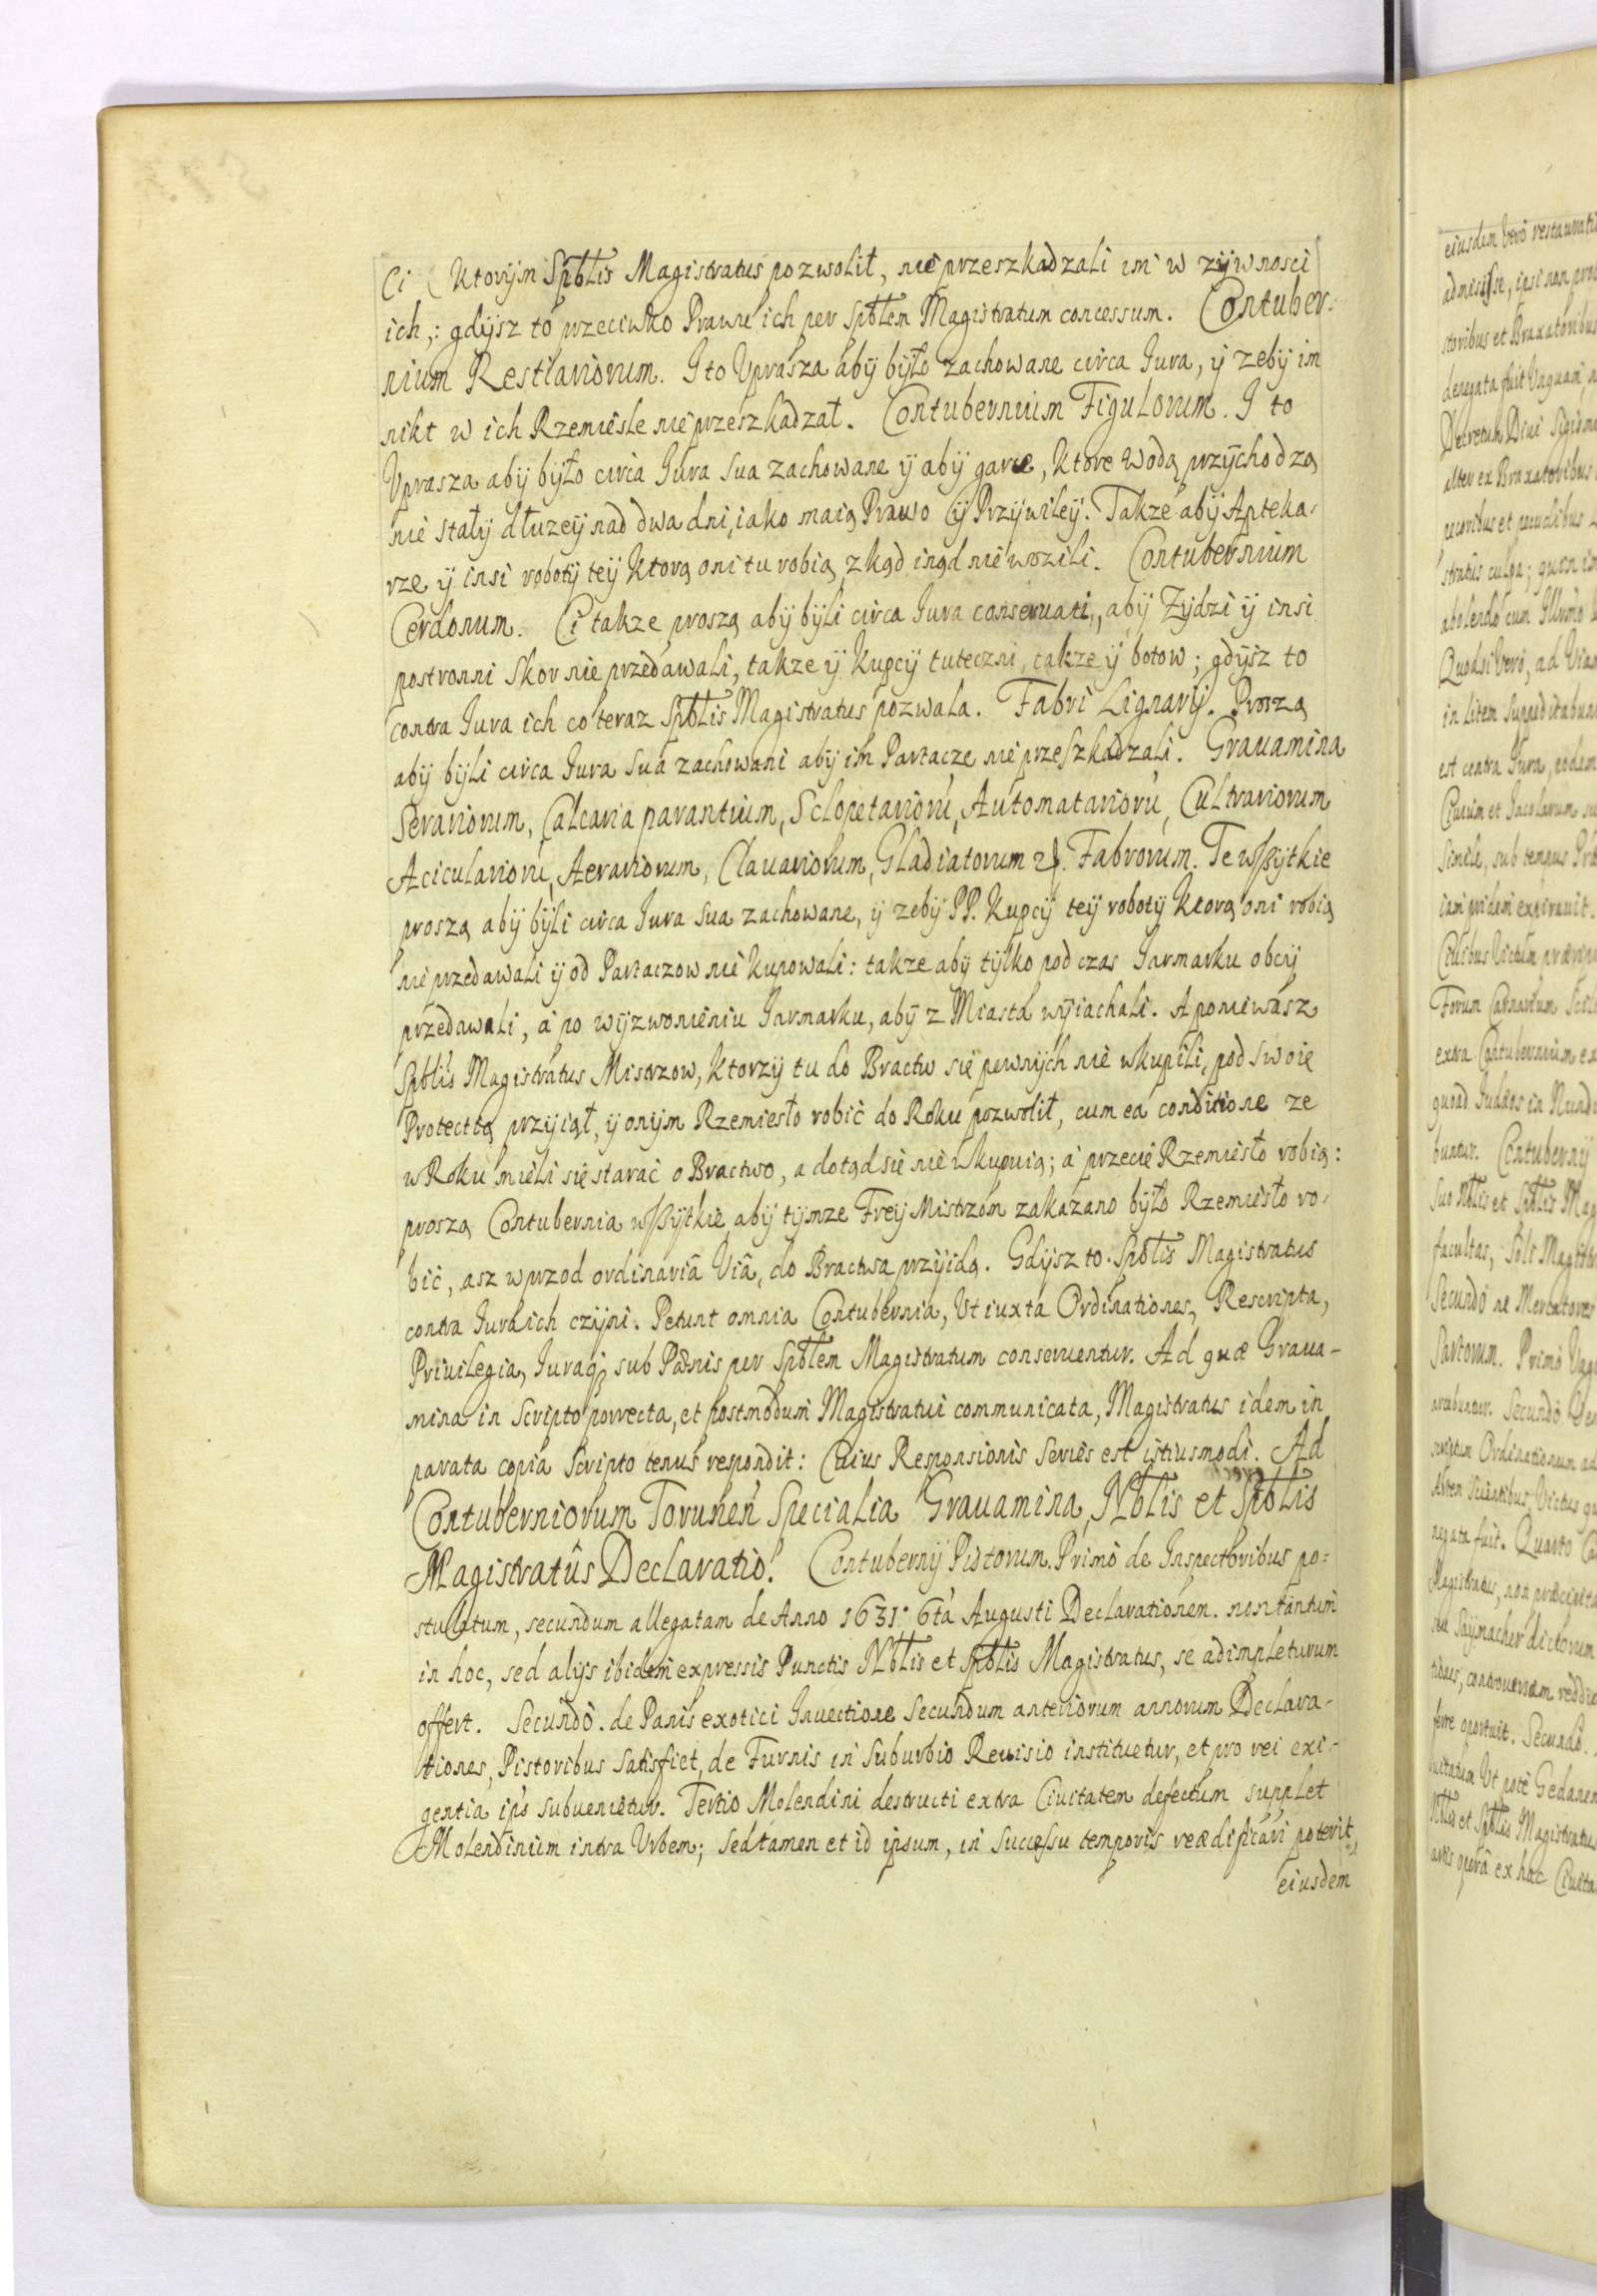 Ci Ktorÿm Spblis Magistratus pozwolił, nie przeszkadzali im w zÿwnosci
ich,: gdÿsz to przeciwko Prawu ich per Spblem Magistratum concessum. Contuber-
nium Restiariorum. I to Vprasza abÿ bÿło zachowane circa Jura, ÿ zebÿ im
nikt w ich Rzemieśle nie przeszkadzał. Contubernium Figulorum. I to
Vprasza abÿ bÿło circa Jura sua zachowane ÿ abÿ garce, Ktore wodą przÿchodzą
nie stałÿ dłuzeÿ nad dwa dni, iako maią Prawo ÿ Przÿwileÿ. Takze abÿ Apteka-
rze ÿ insi robotÿ teÿ Ktorą oni tu robią zkąd inąd nie wozili. Contubernium
Cerdonum. Ci takze proszą abÿ bÿli circa Jura conseruati, abÿ Zÿdzi ÿ insi
postronni Skor nie przedawali, takze ÿ Kupcÿ tuteczni, takze ÿ botow; gdÿsz to
contra Jura ich co teraz Spblis Magistratus pozwala. Fabri Lignarÿ. Proszą
abÿ bÿli circa Jura sua zachowani abÿ im Partacze nie przeszkadzali. Grauamina
Serariorum, Calcaria parantium, Sclopetariorũ, Automatariorũ, Cultrariorum
Aciculariorũ, Aerariorum, Clauariorum, Gladiatorum Fabrorum. Te wszÿtkie
proszą abÿ bÿli circa Jura sua zachowane, ÿ zebÿ PP. Kupcÿ teÿ robotÿ Ktorą oni robią
nie przedawali ÿ od Partaczow nie Kupowali: takze abÿ tÿlko pod czas Jarmarku obcÿ
przedawali, a po wÿzwonieniu Jarmarku, abÿ z Miasta wÿiachali. A poniewasz
Spblis Magistratus Mistrzow, Ktorzÿ tu do Bractw się pewnÿch nie wkupili, pod swoię
Protectią przÿiął, ÿ onÿm Rzemiesło robić do Roku pozwolił, cum ea conditione ze
w Roku mieli się starać o Bractwo, a dotąd się nie wkupuią; a przecię Rzemiesło robią:
proszą Contubernia wszÿtkie abÿ tÿmze Freÿ Mistrzom zakazano bÿło Rzemiesło ro-
bić, asz wprzod ordinaria Viâ, do Bractwa przÿidą. Gdÿsz to Spblis Magistratus
contra Jura ich czÿni. Petunt omnia Contubernia, Vt iuxta Ordinationes, Rescripta,
Priuilegia, Iuraq, sub Pænis per Spblem Magistratum conseruentur. Ad quæ Graua-
mina in Scripto porrecta, et postmodum Magistratui communicata, Magistratus idem in
parata copia Scripto tenus respondit: Cuius Responsionis Series est istiusmodi. Ad
Contuberniorum Toruneñ Specialia Grauamina, Nblis et Spblis
Magistratûs Declaratio. Contubernÿ Pistorum. Primò de Inspectoribus po-
stulatum, secundum allegatam de Anno 1631. 6tâ Augusti Declarationem. non tantum
in hoc, sed alÿs ibidem expressis Punctis Nblis et Spblis Magistratus, se adimpleturum
offert. Secundò. de Panis exotici Inuectione secundum anteriorum annorum Declara-
tiones, Pistoribus satisfiet, de Furnis in Suburbio Reuisio instituetur, et pro rei exi-
gentia ipis subuenietur. Tertio Molendini destructi extra Ciuitatem defectum supplet
Molendinum intra Vrbem; sed tamen et id ipsum, in successu temporis reædificari poterit,
eiusdem
eiusdem Verò
admisisse, ipsi non
storibus et Braxatoribus
denegata fuit
Decretum Diui
alter ex Braxatoribus
pecoribus et pecudibus
stratus culpa; quem
abolendo cum
Quodsi Verò, ad
in litem
est contra Jura,
Ciuium et Incolarum
Simile, sub tempus
iam pridem expirauit.
Ciuibus Victum
Forum
extra Contubernium
quoad Judæos in
buntur. Contubernÿ
suo Nblis et Spblis
facultas, Soli
Secundò ne Mercatores
Sartorum. Primò
Secundò
scriptum Ordinationum
Artem Victus
negata fuit. Quarto
Magistratus, non
dictorum
ferre oportuit. Secundò.
Vt potè
Nblis et Spblis Magistratus
operâ ex hac